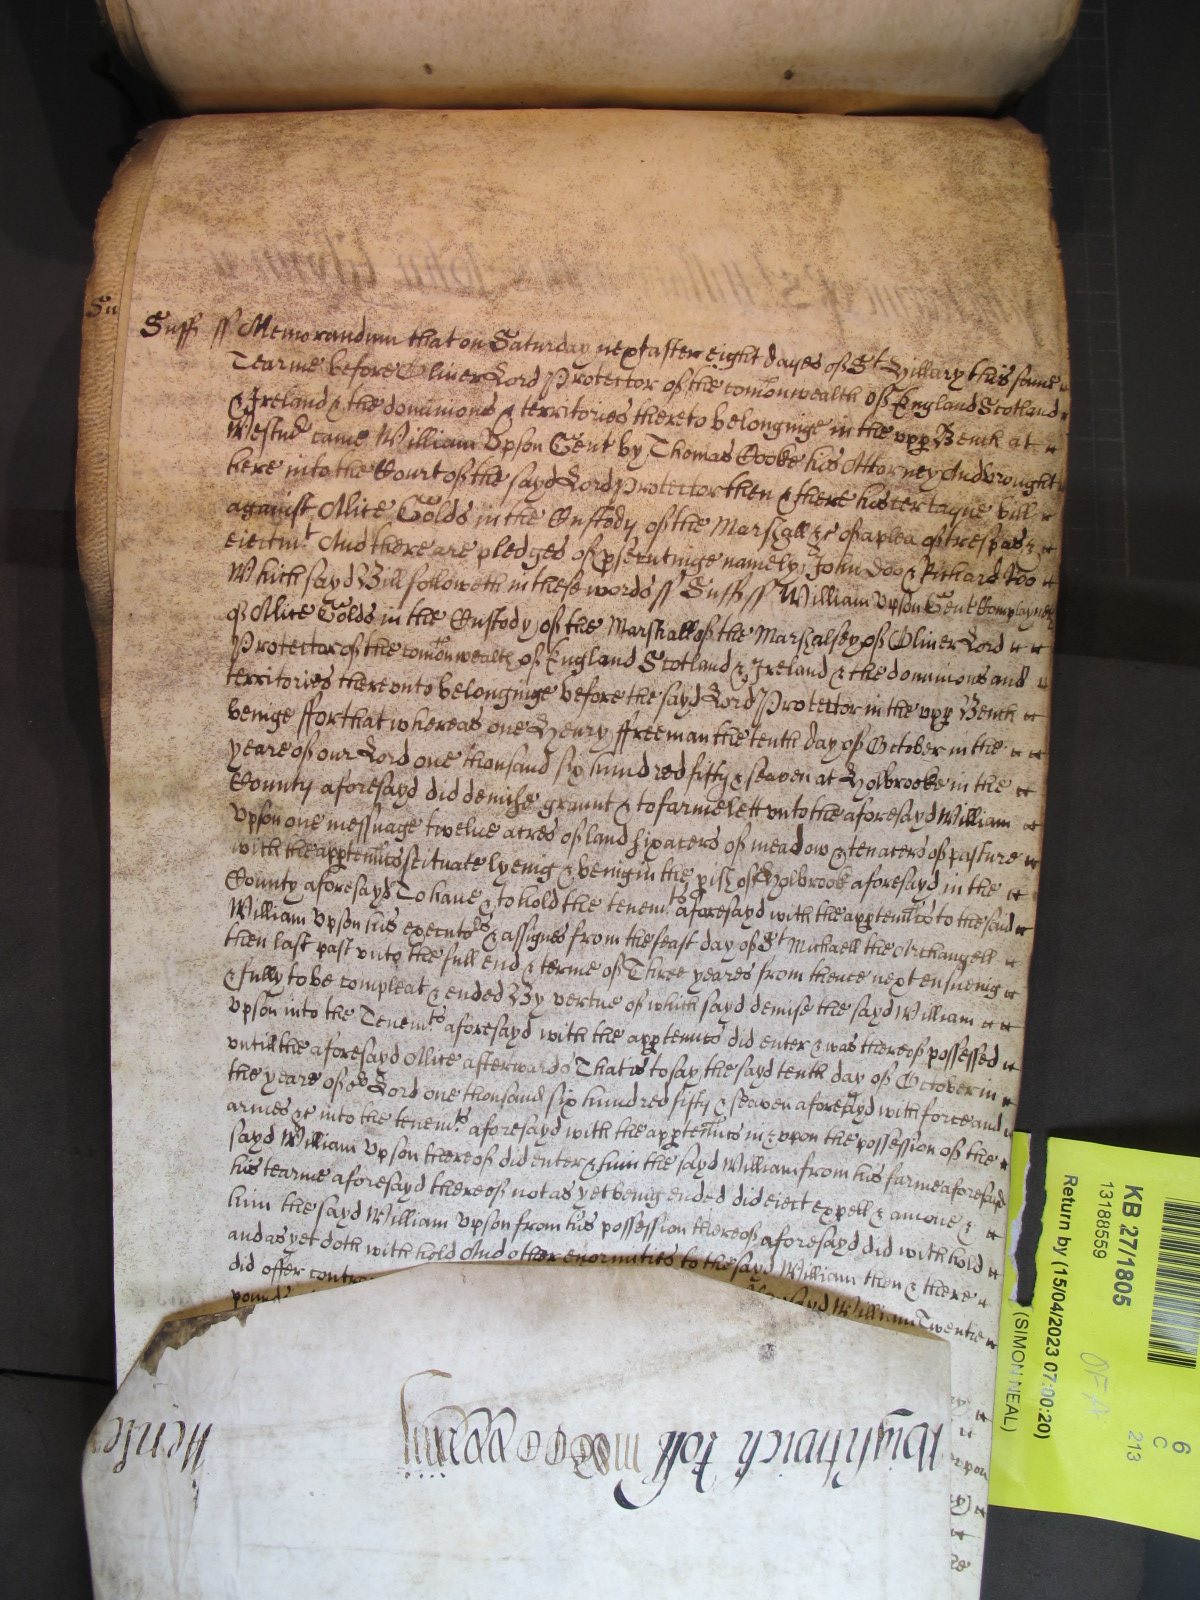 Su
Suff ss Memorandum that on Saturday next after eight dayes of St Hillary this same
Tearme before Oliver Lord Protector of the comonwealth of England Scotland
& Ireland & the dominions & territories thereto belonginge in the upp Bench at
Westmr came William Upson Gent by Thomas Cooke his Attorney And brought
here into the Court of the sayd Lord Protector then & there his certayne bill
against Alice Golds in the Custody of the Marshall &c of a plea of trespas &
eiectmt And there are pledges of psecutinge namely John Doo & Richard Roo
Which sayd Bill followeth in these words ss Suff ss William Upson Gent Complayneth
of Alice Golds in the Custody of the Marshall of the Marshalsey of Oliver Lord
Protector of the comonwealth of England Scotland & Ireland & the dominions and
territories thereunto belonginge before the sayd Lord Protector in the upp Bench
beinge ffor that whereas one Henry ffreeman the tenth day of October in the
yeare of our Lord one thousand six hundred fifty & seaven at Holbrooke in the
County aforesayd did demise graunt & to farme lett unto the aforesayd William
Upson one messuage twelve acres of land six acers of meadow & ten acers of pasture
with the apptennces scituate lyeing & being in the pish of Holbrook aforesayd in the
County aforesayd To have & to hold the tenemts aforesayd with the apptennces to the said
William Upson his executors & assignes from the feast day of St Michaell the Archangell
then last past unto the full end & terme of Three yeares from thence next ensueing
& fully to be compleat & ended By vertue of which sayd demise the sayd William
Upson into the Tenemts aforesayd with the apptennces did enter & was thereof possessed
untill the aforesayd Alice afterwards That is to say the sayd tenth day of October in
the yeare of or Lord one thousand six hundred fifty & seaven aforesayd with force and
armes &c into the tenemts aforesayd with the apptennces in & upon the possession of the
sayd William Upson thereof did enter & him the sayd William from his farme aforesayd
his tearme aforesayd thereof not as yet being ended did eiect expell & amove &
him the sayd William Upson from his possession thereof aforesayd did withhold
and as yet doth with hold And other enormities to the sayd William then & there
did offer contr
pound sayd William Twentie
KB 27/1805
13188559
Return by (15/04/2023 07:00:20)
(SIMON NEAL)
6
C
213